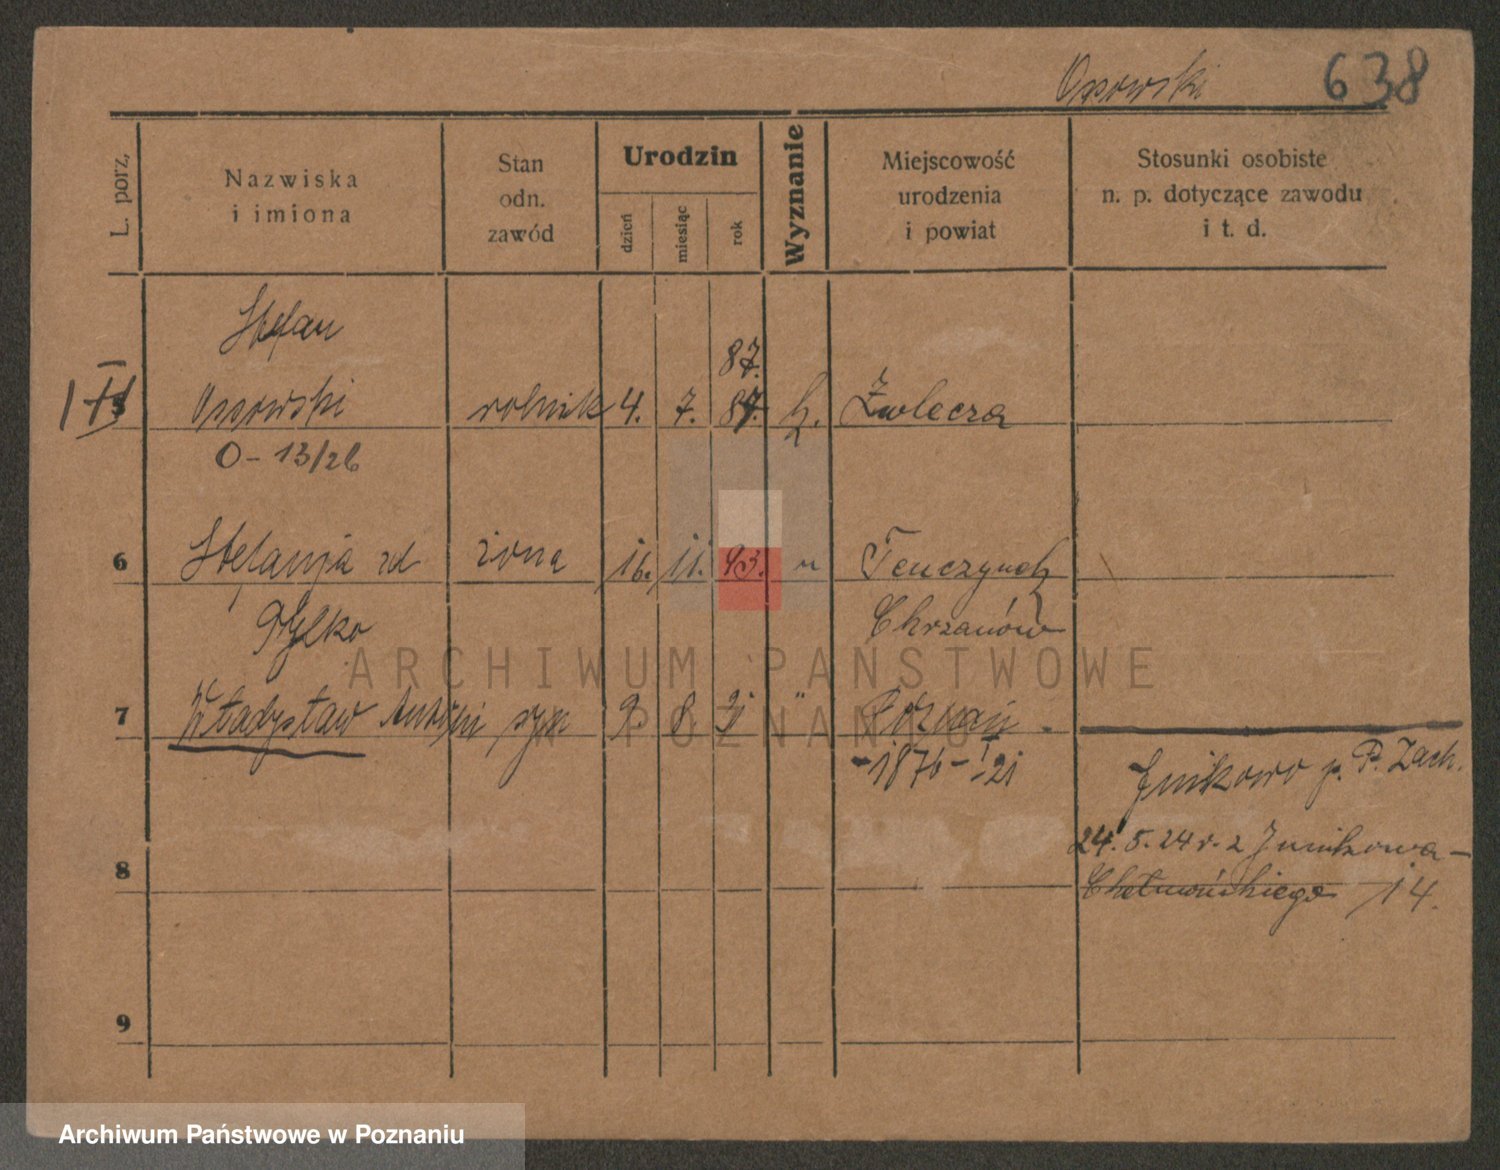 Ossowski 638
L. porz.
Nazwiska
i imiona
Stan
odn.
zawód
Urodzin
dzień
miesiąc
rok
Wyznanie
Miejscowość
urodzenia
i powiat
Stosunki osobiste
n. p. dotyczące zawodu
i t. d.
Stefan
87.
5 Ossowski rolnik 4. 7. 87. k.
O-13/26
6 Stefanja zd żona 16. 11. 93. " Tenczynek
Pylko Chrzanów
ARCHIWUM PAŃSTWOWE
7 Władysław Antoni syn 9. 8 21 " Poznań
W POZNANIU
-1876- I 21
Junikowo p. P. Zach.
24. 5. 24 r. z Junikowa-
8 Chełmońskiego 14.
9
Archiwum Państwowe w Poznaniu